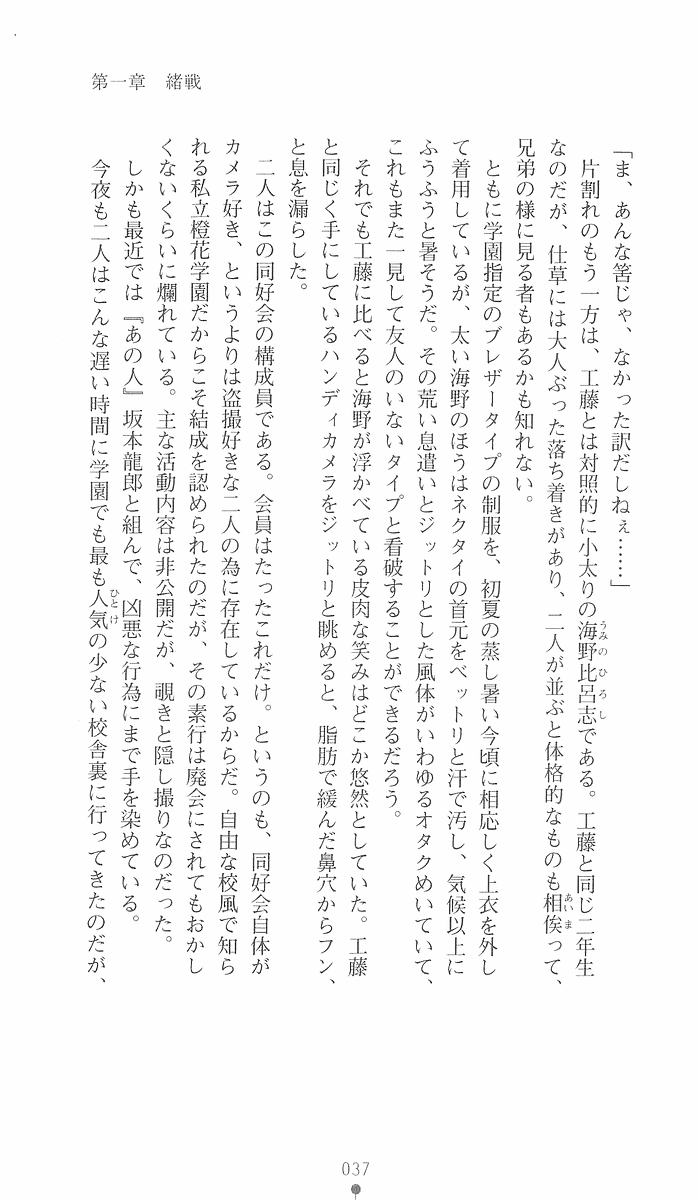 第一章　緒戦
「ま、あんな筈じゃ、なかった訳だしねぇ……」
　片割れのもう一方は、工藤とは対照的に小太りの海野比呂志である。工藤と同じ二年生
うみのひろし
なのだが、仕草には大人ぶった落ち着きがあり、二人が並ぶと体格的なものも相俟って、
あいま
兄弟の様に見る者もあるかも知れない。
　ともに学園指定のブレザータイプの制服を、初夏の蒸し暑い今頃に相応しく上衣を外し
て着用しているが、太い海野のほうはネクタイの首元をベットリと汗で汚し、気候以上に
ふうふうと暑そうだ。その荒い息遣いとジットリとした風体がいわゆるオタクめいていて、
これもまた一見して友人のいないタイプと看破することができるだろう。
　それでも工藤に比べると海野が浮かべている皮肉な笑みはどこか悠然としていた。工藤
と同じく手にしているハンディカメラをジットリと眺めると、脂肪で緩んだ鼻穴からフン、
と息を漏らした。
　二人はこの同好会の構成員である。会員はたったこれだけ。というのも、同好会自体が
カメラ好き、というよりは盗撮好きな二人の為に存在しているからだ。自由な校風で知ら
れる私立橙花学園だからこそ結成を認められたのだが、その素行は廃会にされてもおかし
くないくらいに爛れている。主な活動内容は非公開だが、覗きと隠し撮りなのだった。
　しかも最近では『あの人』坂本龍郎と組んで、凶悪な行為にまで手を染めている。
　今夜も二人はこんな遅い時間に学園でも最も人気の少ない校舎裏に行ってきたのだが、
ひとけ
037